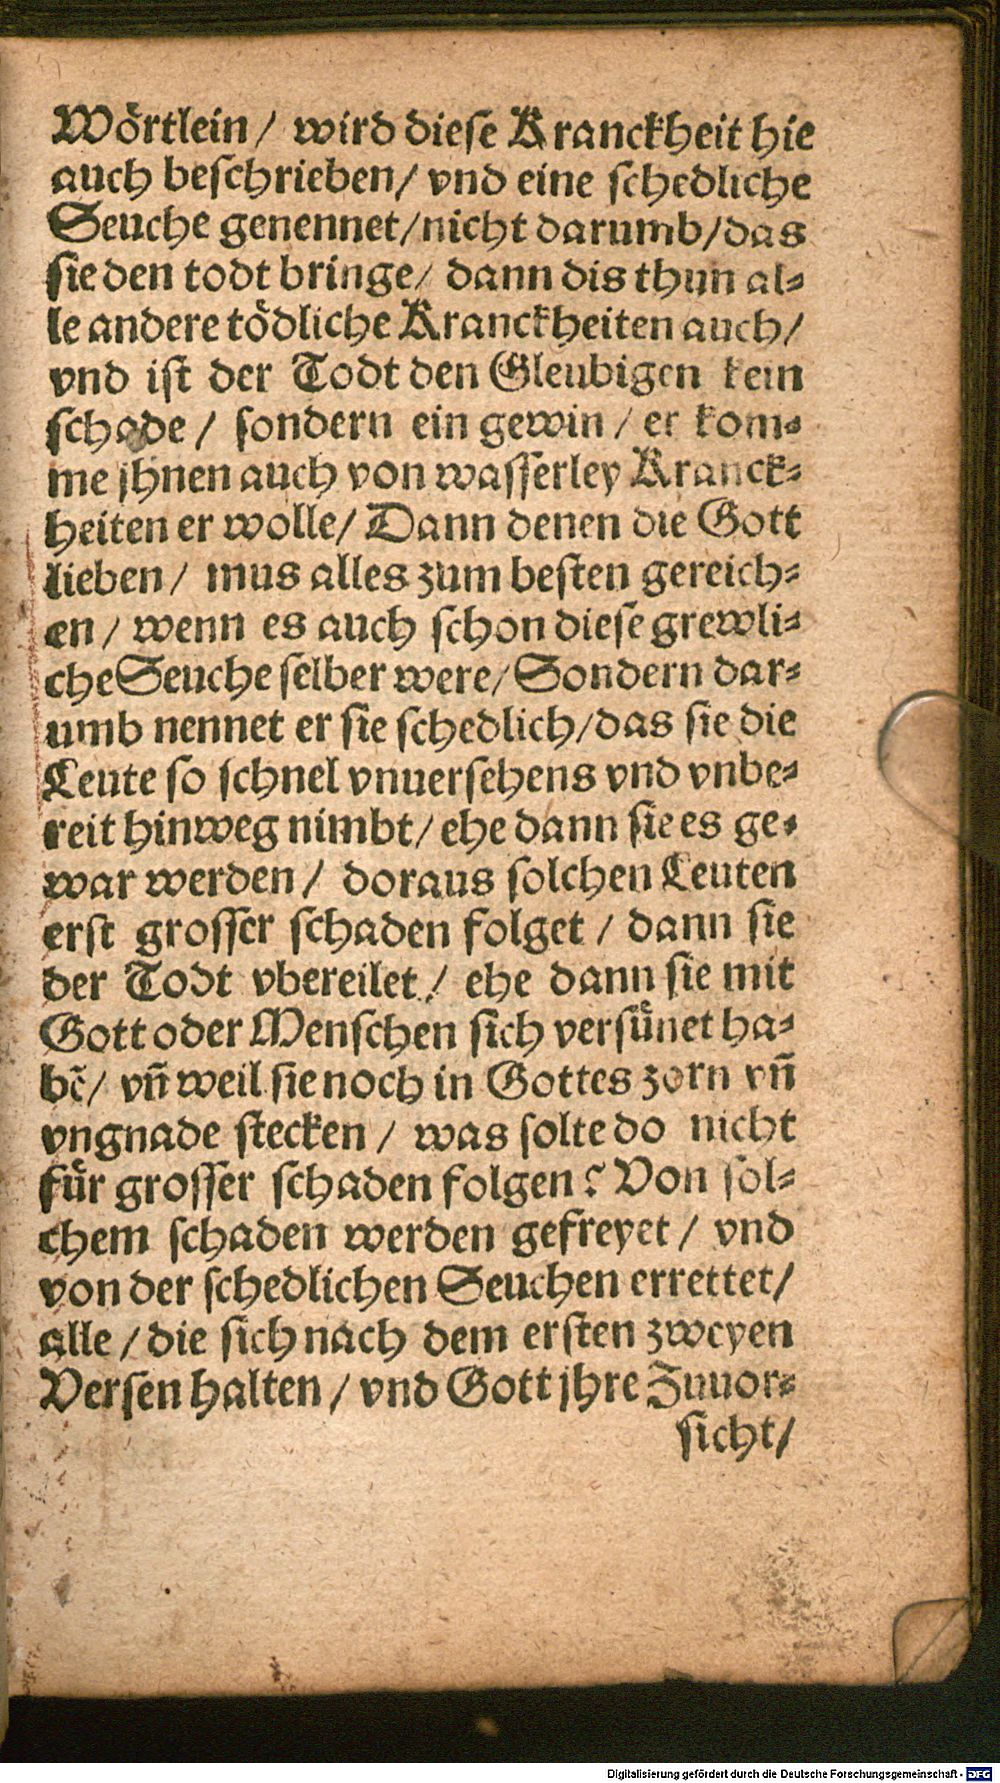 Wörtlein / wird diese Kranckheit hie
auch beschrieben / vnd eine schedliche
Seuche genennet / nicht darumb / das
sie den todt bringe / dann dis thun al-
le andere tödliche Kranckheiten auch /
vnd ist der Todt den Gleubigen kein
schade / sondern ein gewin / er kom-
me jhnen auch von wasserley Kranck-
heiten er wolle / Dann denen die Gott
lieben / mus alles zum besten gereich-
en / wenn es auch schon diese grewli-
che Seuche selber were / Sondern dar-
umb nennet er sie schedlich / das sie die
Leute so schnel vnuersehens vnd vnbe-
reit hinweg nimbt / ehe dann sie es ge-
war werden / doraus solchen Leuten
erst grosser schaden folget / dann sie
der Todt vbereilet / ehe dann sie mit
Gott oder Menschen sich versuͤnet ha-
bẽ / vñ weil sie noch in Gottes zorn vñ
vngnade stecken / was solte do nicht
fuͤr grosser schaden folgen? Von sol-
chem schaden werden gefreyet / vnd
von der schedlichen Seuchen errettet /
alle / die sich nach dem ersten zweyen
Versen halten / vnd Gott jhre Zuuor-
sicht /
Digitalisierung gefördert durch die Deutsche Forschungsgemeinschaft - DFG